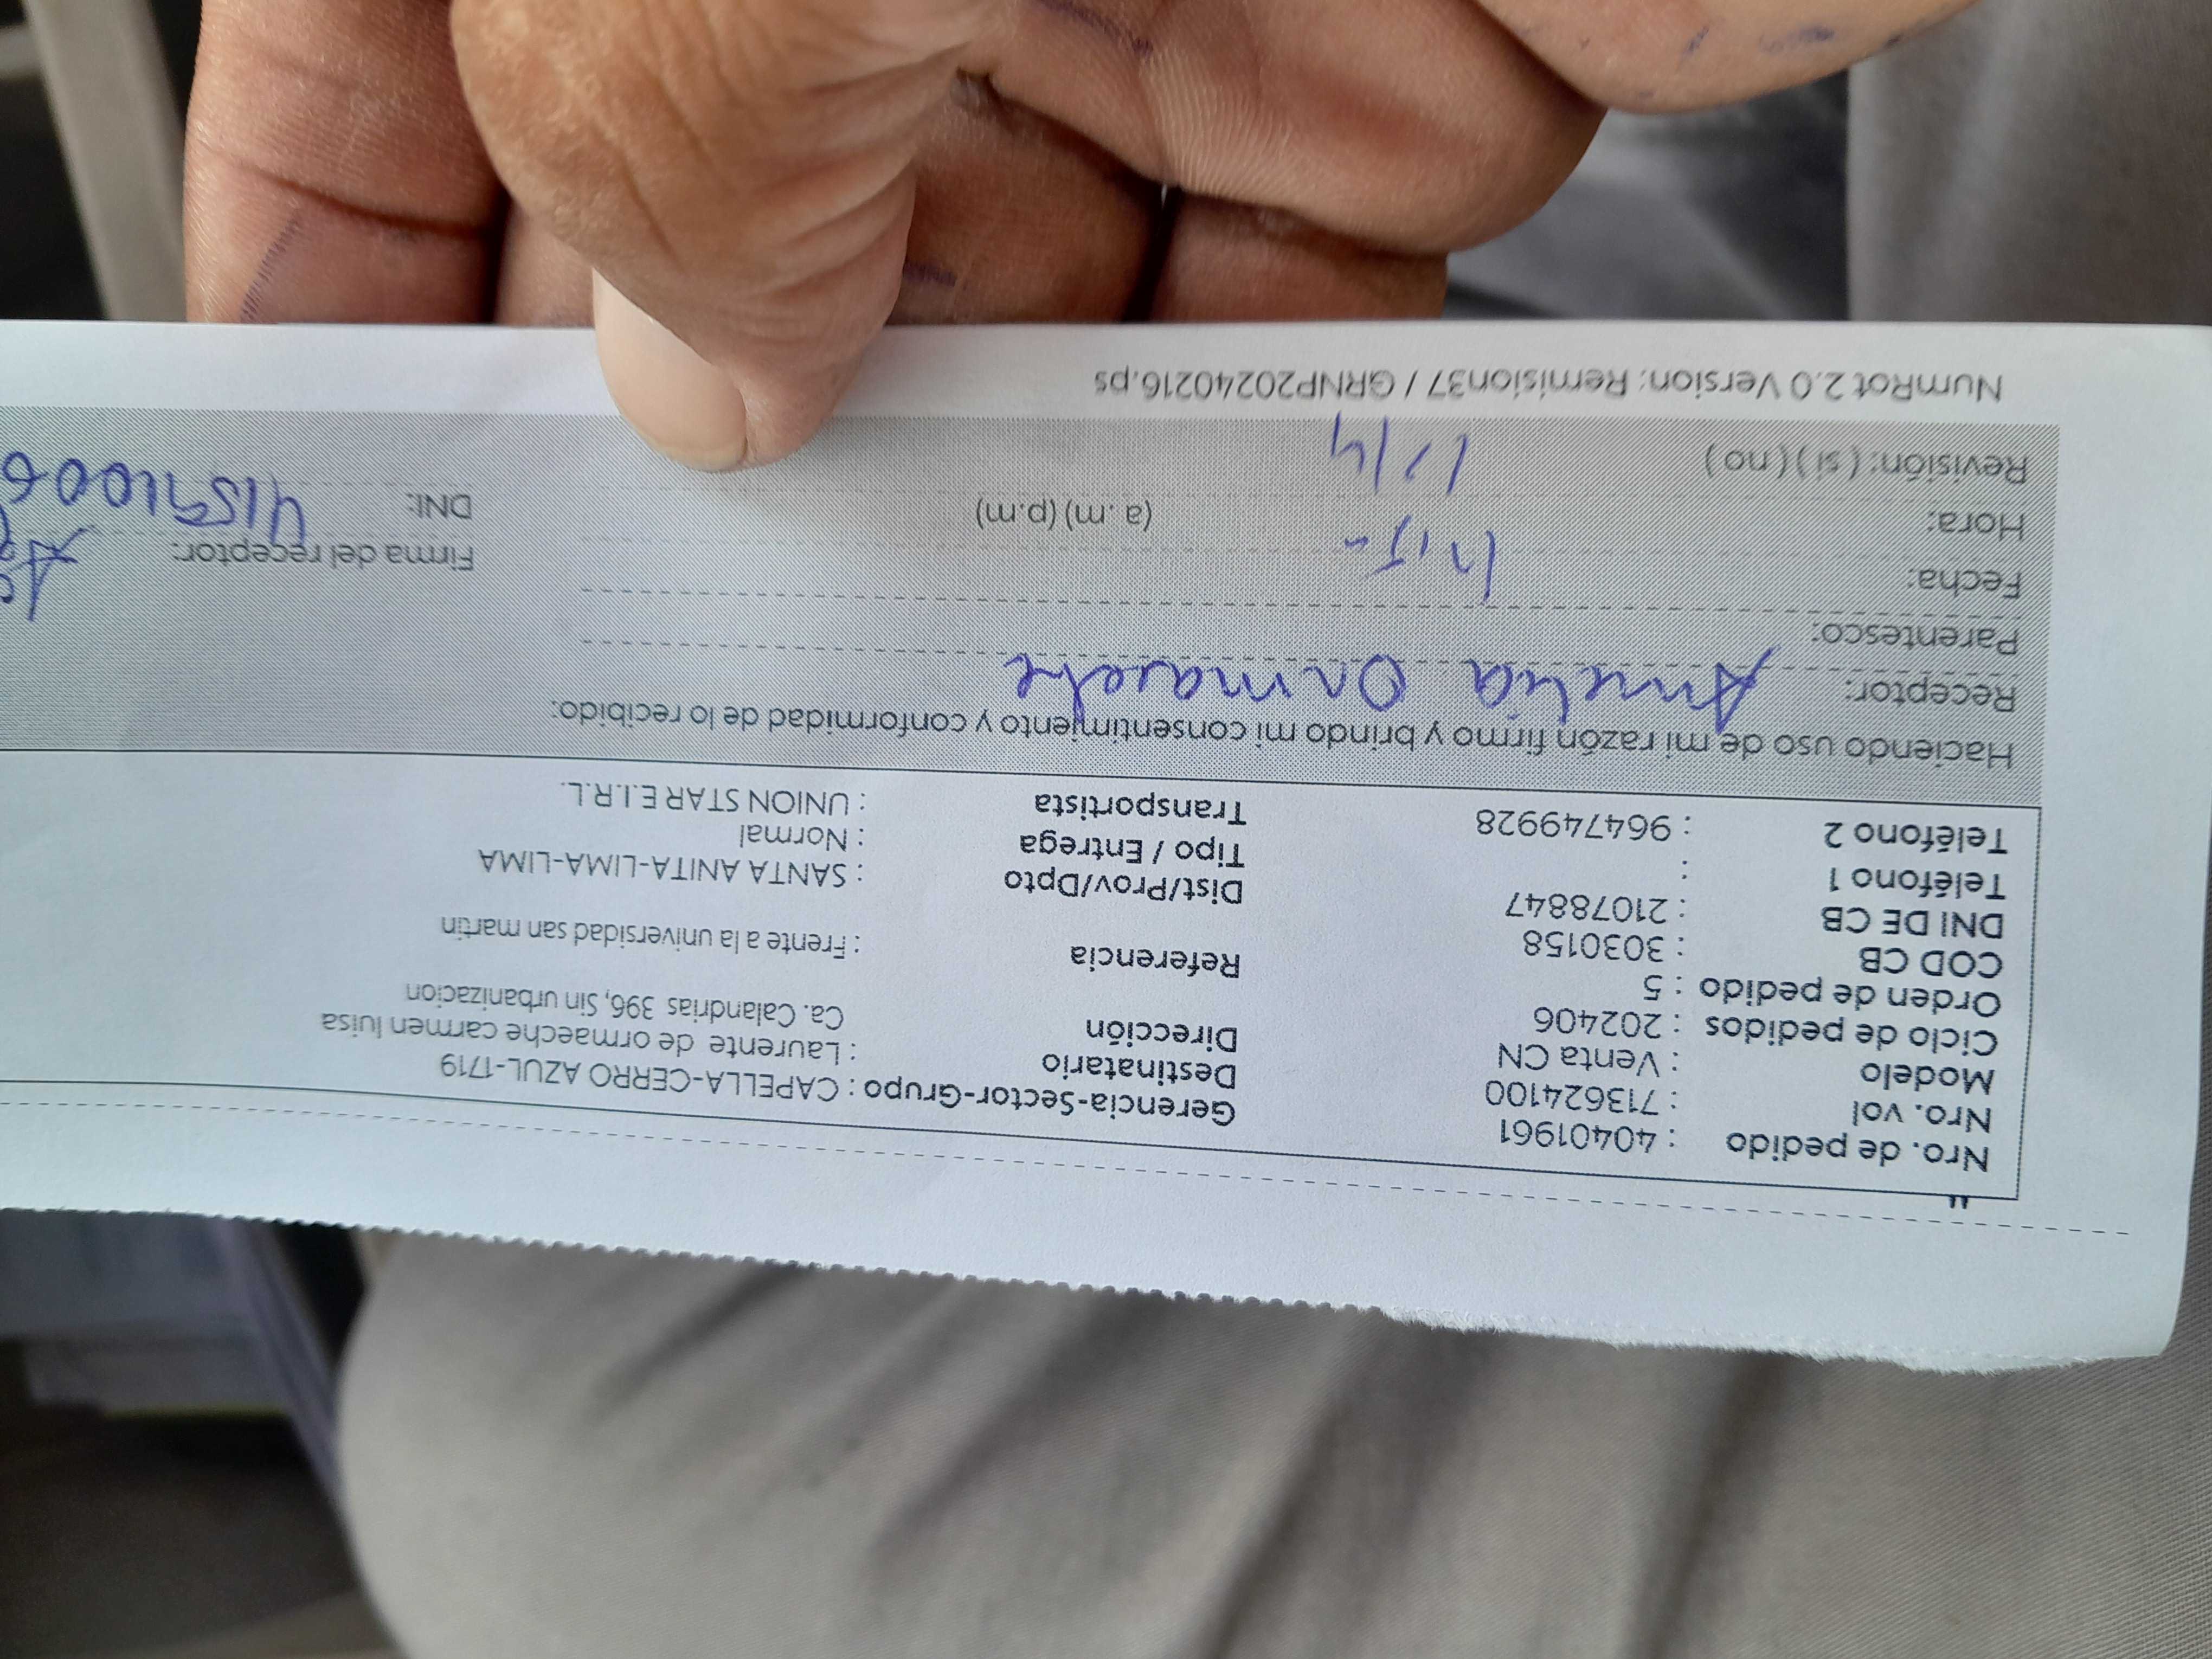 Nro. de pedido : 40401961
Nro. vol : 713624100
Modelo : Venta CN
Ciclo de pedidos : 202406
Orden de pedido : 5
COD CB : 3030158
DNI DE CB : 21078847
Teléfono 1 :
Teléfono 2 : 964749928
Gerencia-Sector-Grupo : CAPELLA-CERRO AZUL-1719
Destinatario : Laurente de ormaeche carmen luisa
Dirección Ca. Calandrias 396, Sin urbanizacion
Referencia : Frente a la universidad san martin
Dist/Prov/Dpto : SANTA ANITA-LIMA-LIMA
Tipo / Entrega : Normal
Transportista : UNION STAR E.I.R.L.
Haciendo uso de mi razón firmo y brindo mi consentimiento y conformidad de lo recibido:
Receptor: Amelia Ormaeche
Parentesco:
Fecha:
Hora: (a .m) (p.m)
Revisión: ( si ) ( no )
Firma del receptor:
DNI:
NumRot 2.0 Version: Remision37 / GRNP20240216.ps